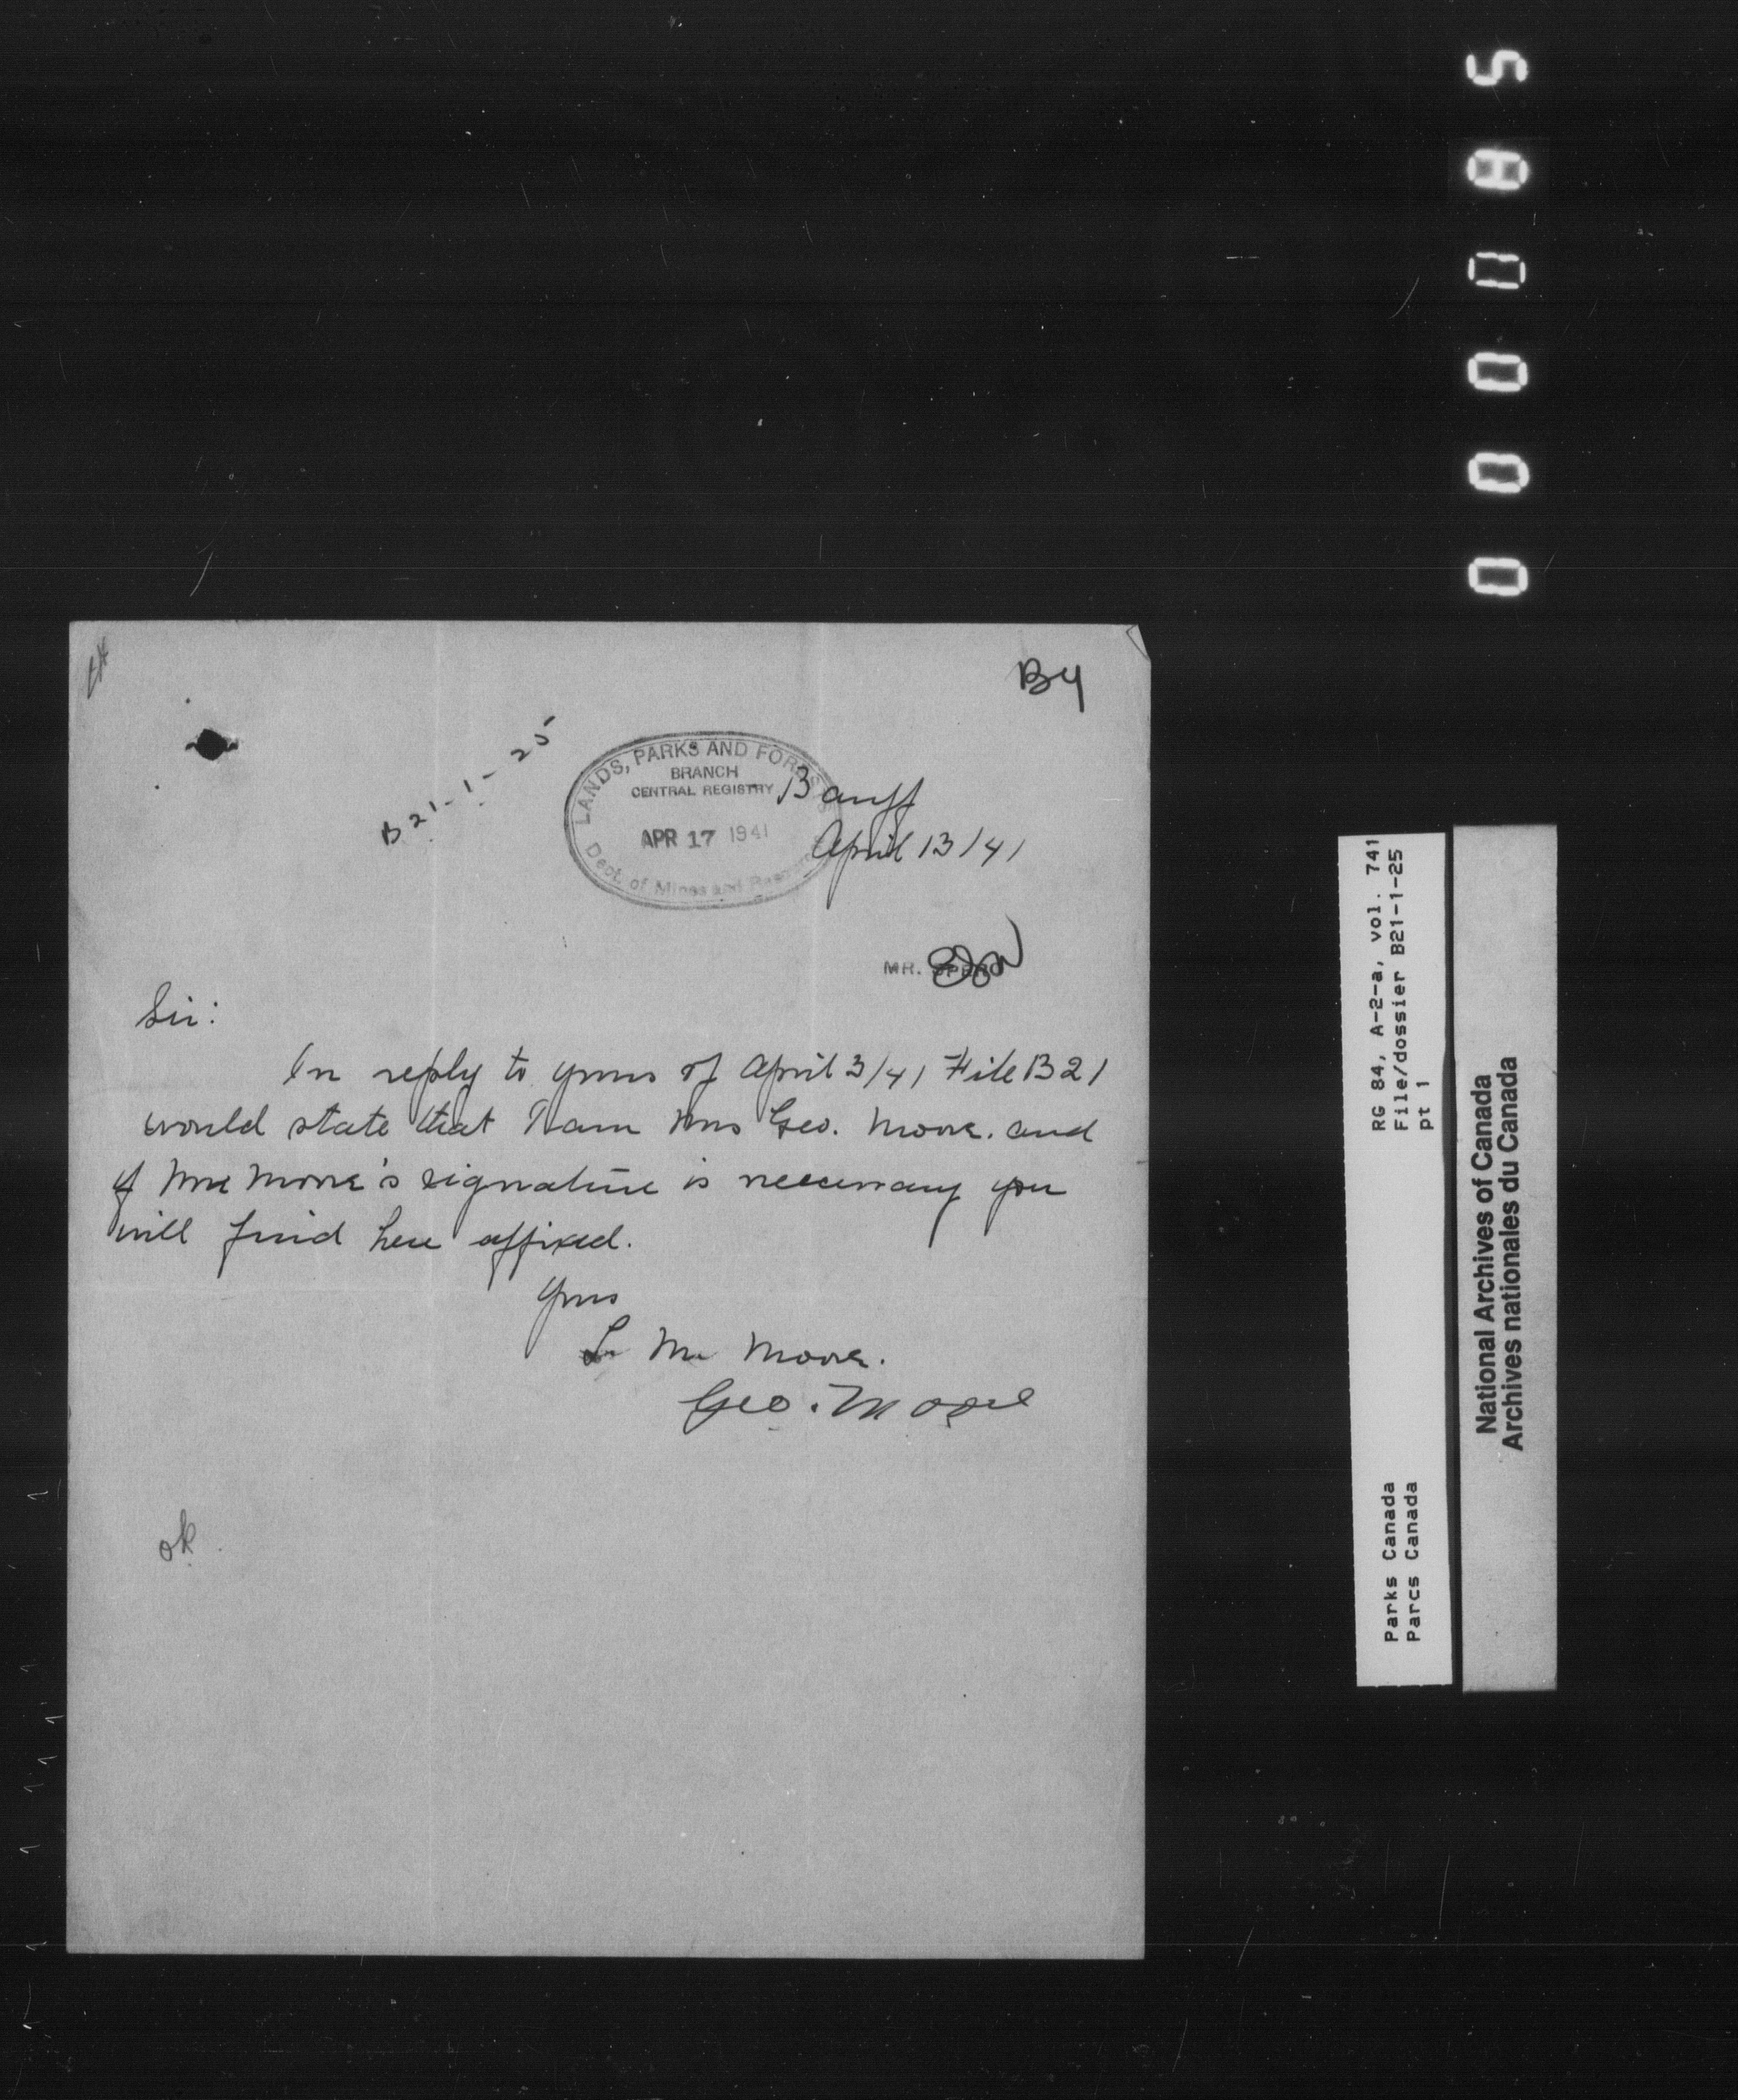 By
B21-1-25
LANDS, PARKS AND FORESTS
BRANCH
CENTRAL REGISTRY
APR 17 1941
Dept. of Mines and Resources
Banff
April 13/41
MR. SPERO
Sir:
In reply to yours of April 3/41 File B21
would state that I am Mrs Geo. Moore. and
if Mr Moore's signature is necessary you
will find here affixed.
Yours
L M Moore.
Geo. Moore
ok
RG 84, A-2-a, vol. 741
File/dossier B21-1-25
pt 1
Parks Canada
Parcs Canada
National Archives of Canada
Archives nationales du Canada